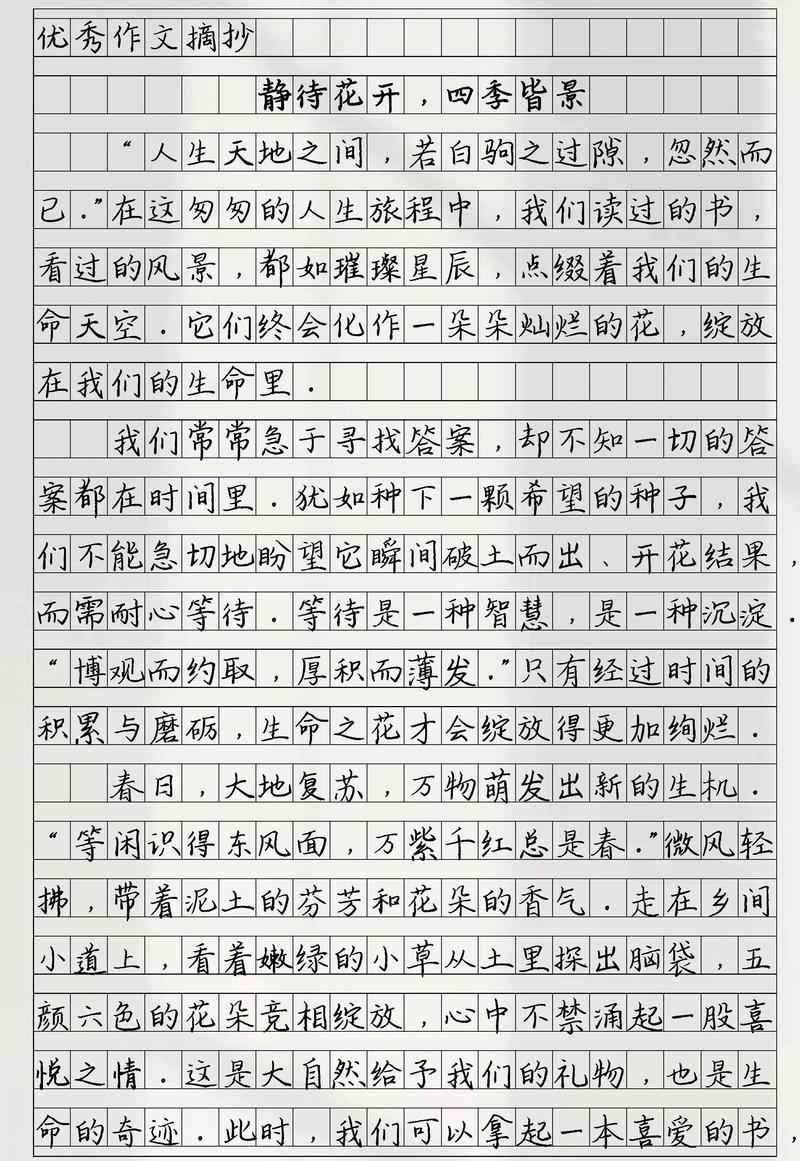 优秀作文摘抄
静待花开，四季皆景
“人生天地之间，若白驹之过隙，忽然而
已．”在这匆匆的人生旅程中，我们读过的书，
看过的风景，都如璀璨星辰，点缀着我们的生
命天空．它们终会化作一朵朵灿烂的花，绽放
在我们的生命里．
我们常常急于寻找答案，却不知一切的答
案都在时间里．犹如种下一颗希望的种子，我
们不能急切地盼望它瞬间破土而出、开花结果，
而需耐心等待．等待是一种智慧，是一种沉淀．
“博观而约取，厚积而薄发．”只有经过时间的
积累与磨砺，生命之花才会绽放得更加绚烂．
春日，大地复苏，万物萌发出新的生机．
“等闲识得东风面，万紫千红总是春．”微风轻
拂，带着泥土的芬芳和花朵的香气．走在乡间
小道上，看着嫩绿的小草从土里探出脑袋，五
颜六色的花朵竞相绽放，心中不禁涌起一股喜
悦之情．这是大自然给予我们的礼物，也是生
命的奇迹．此时，我们可以拿起一本喜爱的书，